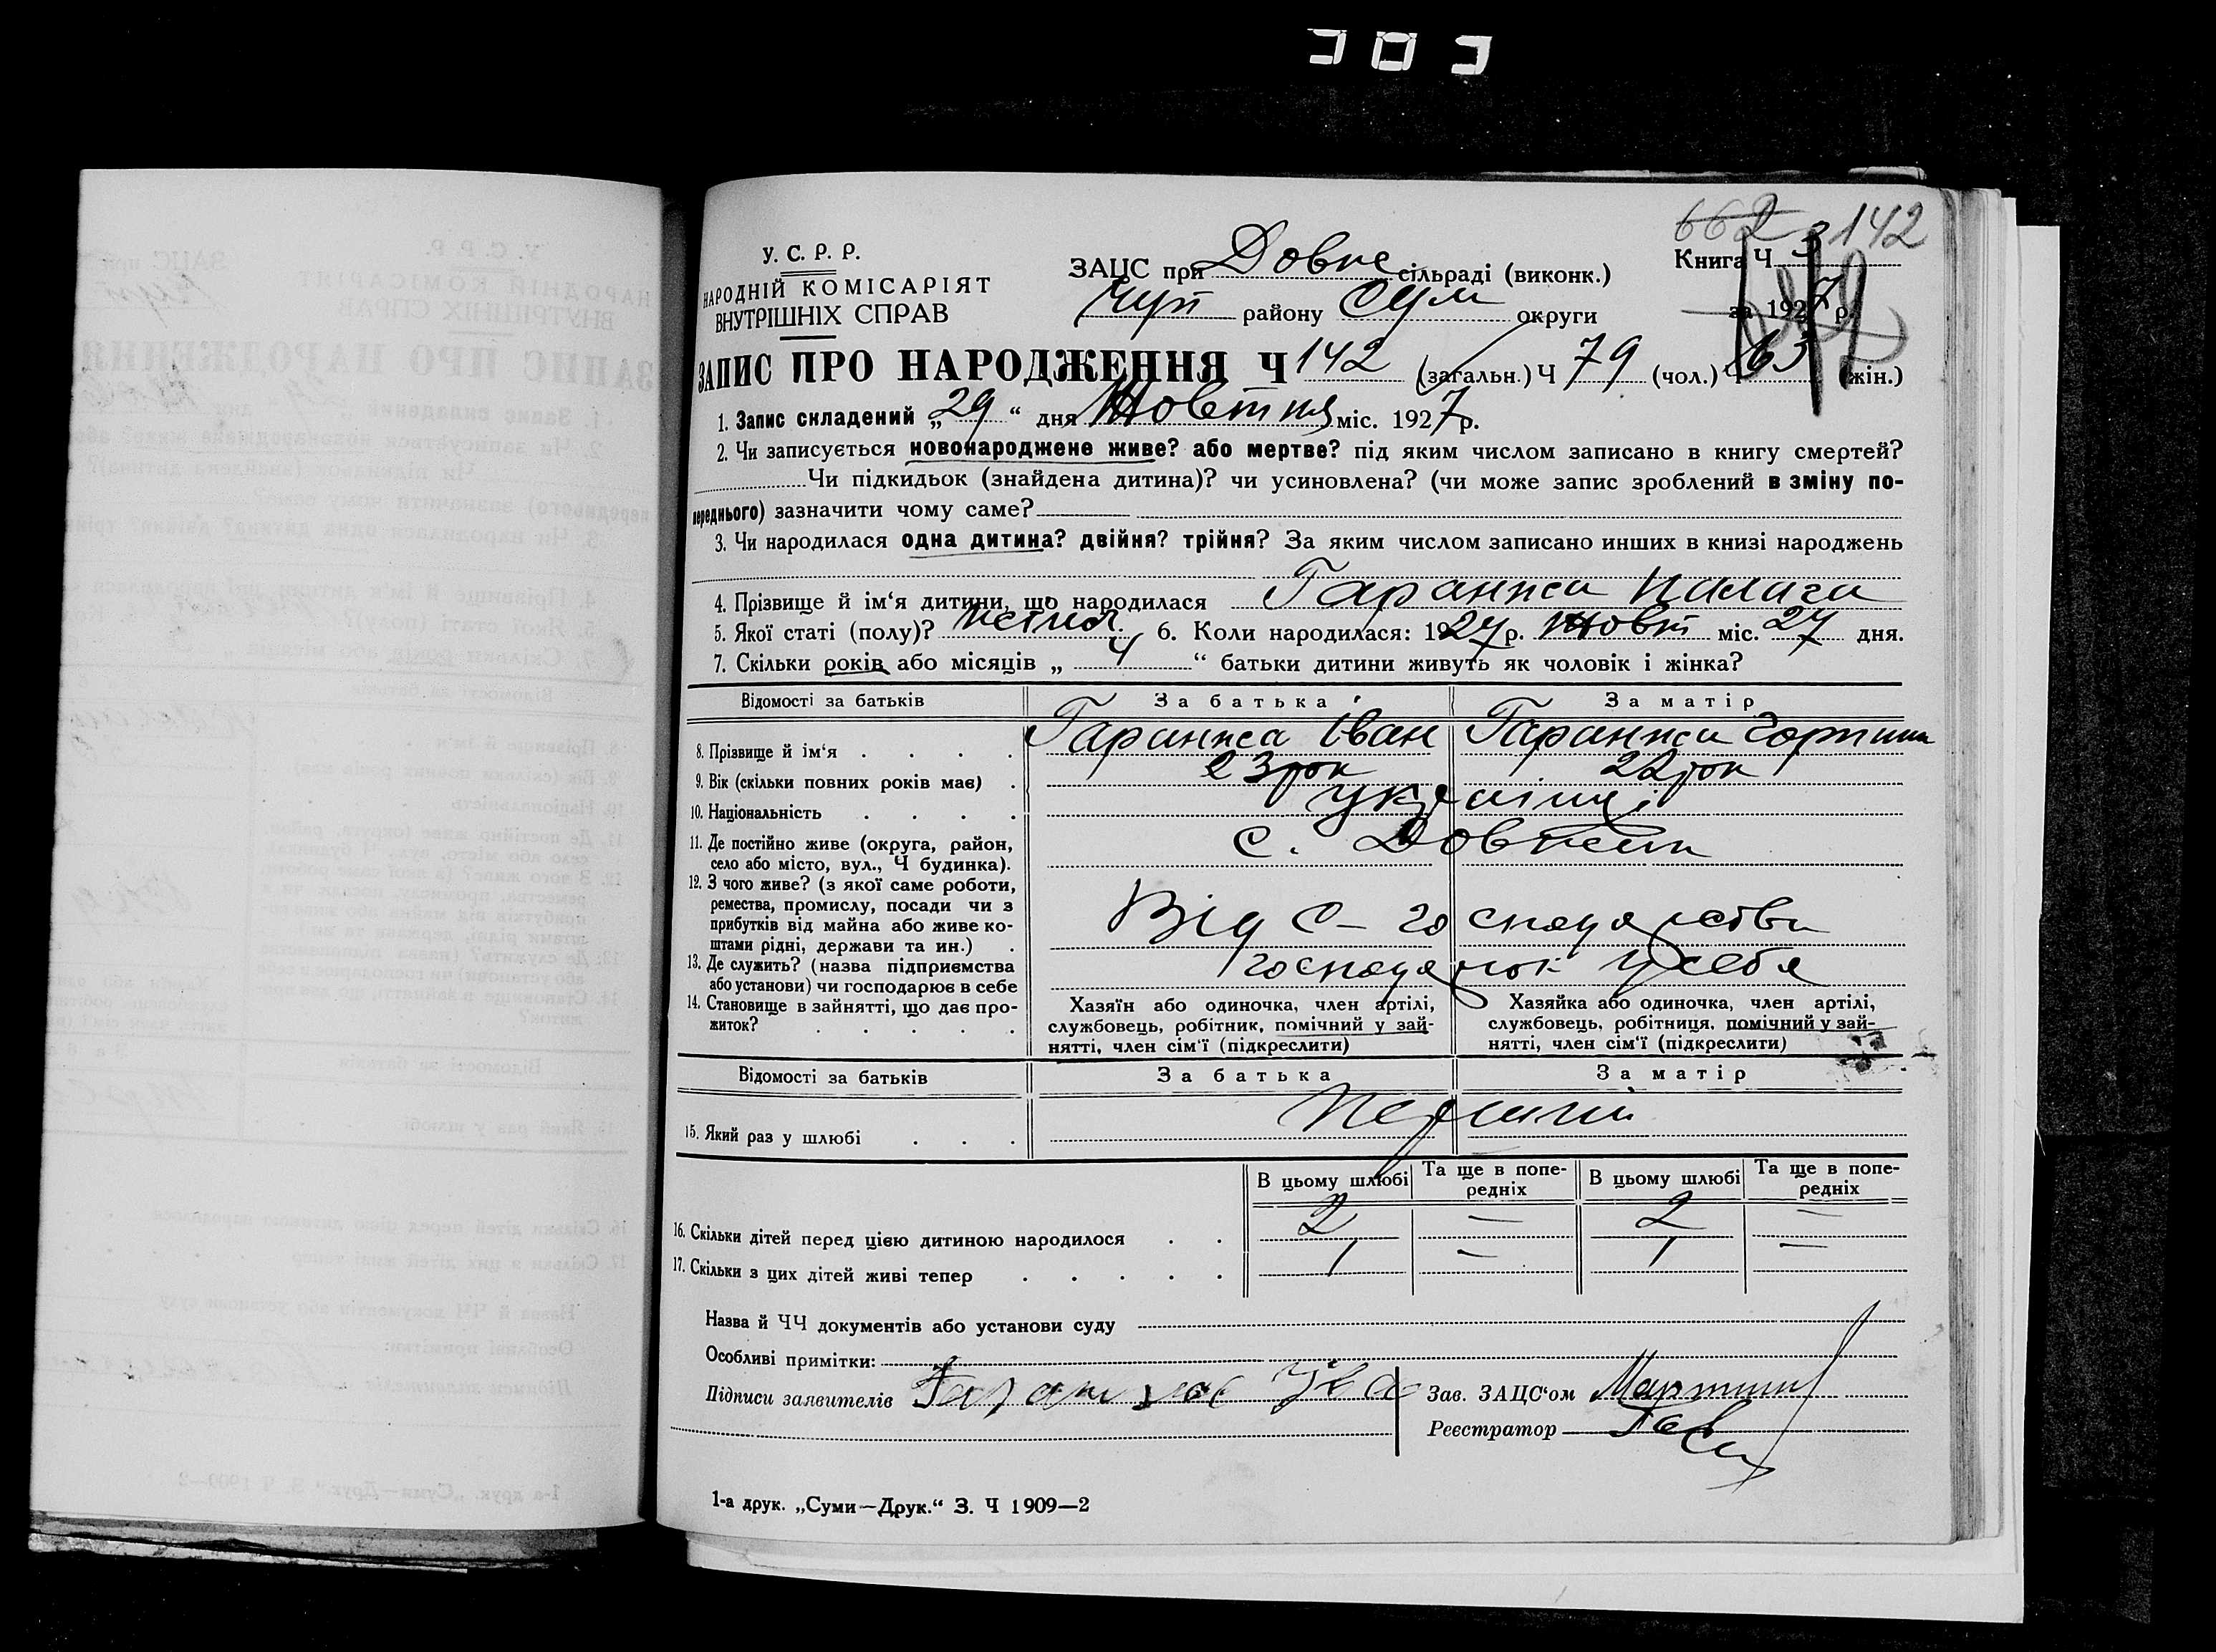 303
662 142
У. С. Р. Р.
НАРОДНІЙ КОМІСАРІЯТ
ВНУТРІШНІХ СПРАВ
ЗАЦС при Довж сільраді (виконк.)
Чуп району Сум округи
Книга Ч 3
за 1927 р.
ЗАПИС ПРО НАРОДЖЕННЯ Ч 142 (загальн.) Ч 79 (чол.) Ч 63 (жін.)
1. Запис складений „ 29 “ дня Жовтня міс. 1927 р.
2. Чи записується новонароджене живе? або мертве? під яким числом записано в книгу смертей?
Чи підкидьок (знайдена дитина)? чи усиновлена? (чи може запис зроблений в зміну по-
переднього) зазначити чому саме?
3. Чи народилася одна дитина? двійня? трійня? За яким числом записано инших в книзі народжень
4. Прізвище й ім‘я дитини, що народилася Гаранжа Палага
5. Якої статі (полу)? жіноч. 6. Коли народилася: 1927 р. Жовт міс. 27 дня.
7. Скільки років або місяців „ 4 “ батьки дитини живуть як чоловік і жінка?
Відомості за батьків За батька За матір
8. Прізвище й ім‘я Гаранжа Іван Гаранжа Горпина
9. Вік (скільки повних років має) 23 рок 22 рок
10. Національність українці
11. Де постійно живе (округа, район,
село або місто, вул., Ч будинка). с. Довжик
12. З чого живе? (з якої саме роботи,
ремества, промислу, посади чи з
прибутків від майна або живе ко-
штами рідні, держави та ин.) Від с-господарства
13. Де служить? (назва підприємства
або установи) чи господарює в себе у себе
14. Становище в зайнятті, що дає про-
житок?
Хазяїн або одиночка, член артілі,
службовець, робітник, помічний у зай-
нятті, член сім‘ї (підкреслити)
Хазяйка або одиночка, член артілі,
службовець, робітниця, помічний у зай-
нятті, член сім‘ї (підкреслити)
Відомості за батьків За батька За матір
15. Який раз у шлюбі Перший
В цьому шлюбі Та ще в попе-
редніх В цьому шлюбі Та ще в попе-
редніх
16. Скільки дітей перед цією дитиною народилося 2 — 2 —
17. Скільки з цих дітей живі тепер 1 — 1 —
Назва й ЧЧ документів або установи суду
Особливі примітки:
Підписи заявителів Гаранжа Іва
Зав. ЗАЦС‘ом
Реєстратор
1-а друк. „Суми—Друк.“ З. Ч 1909—2